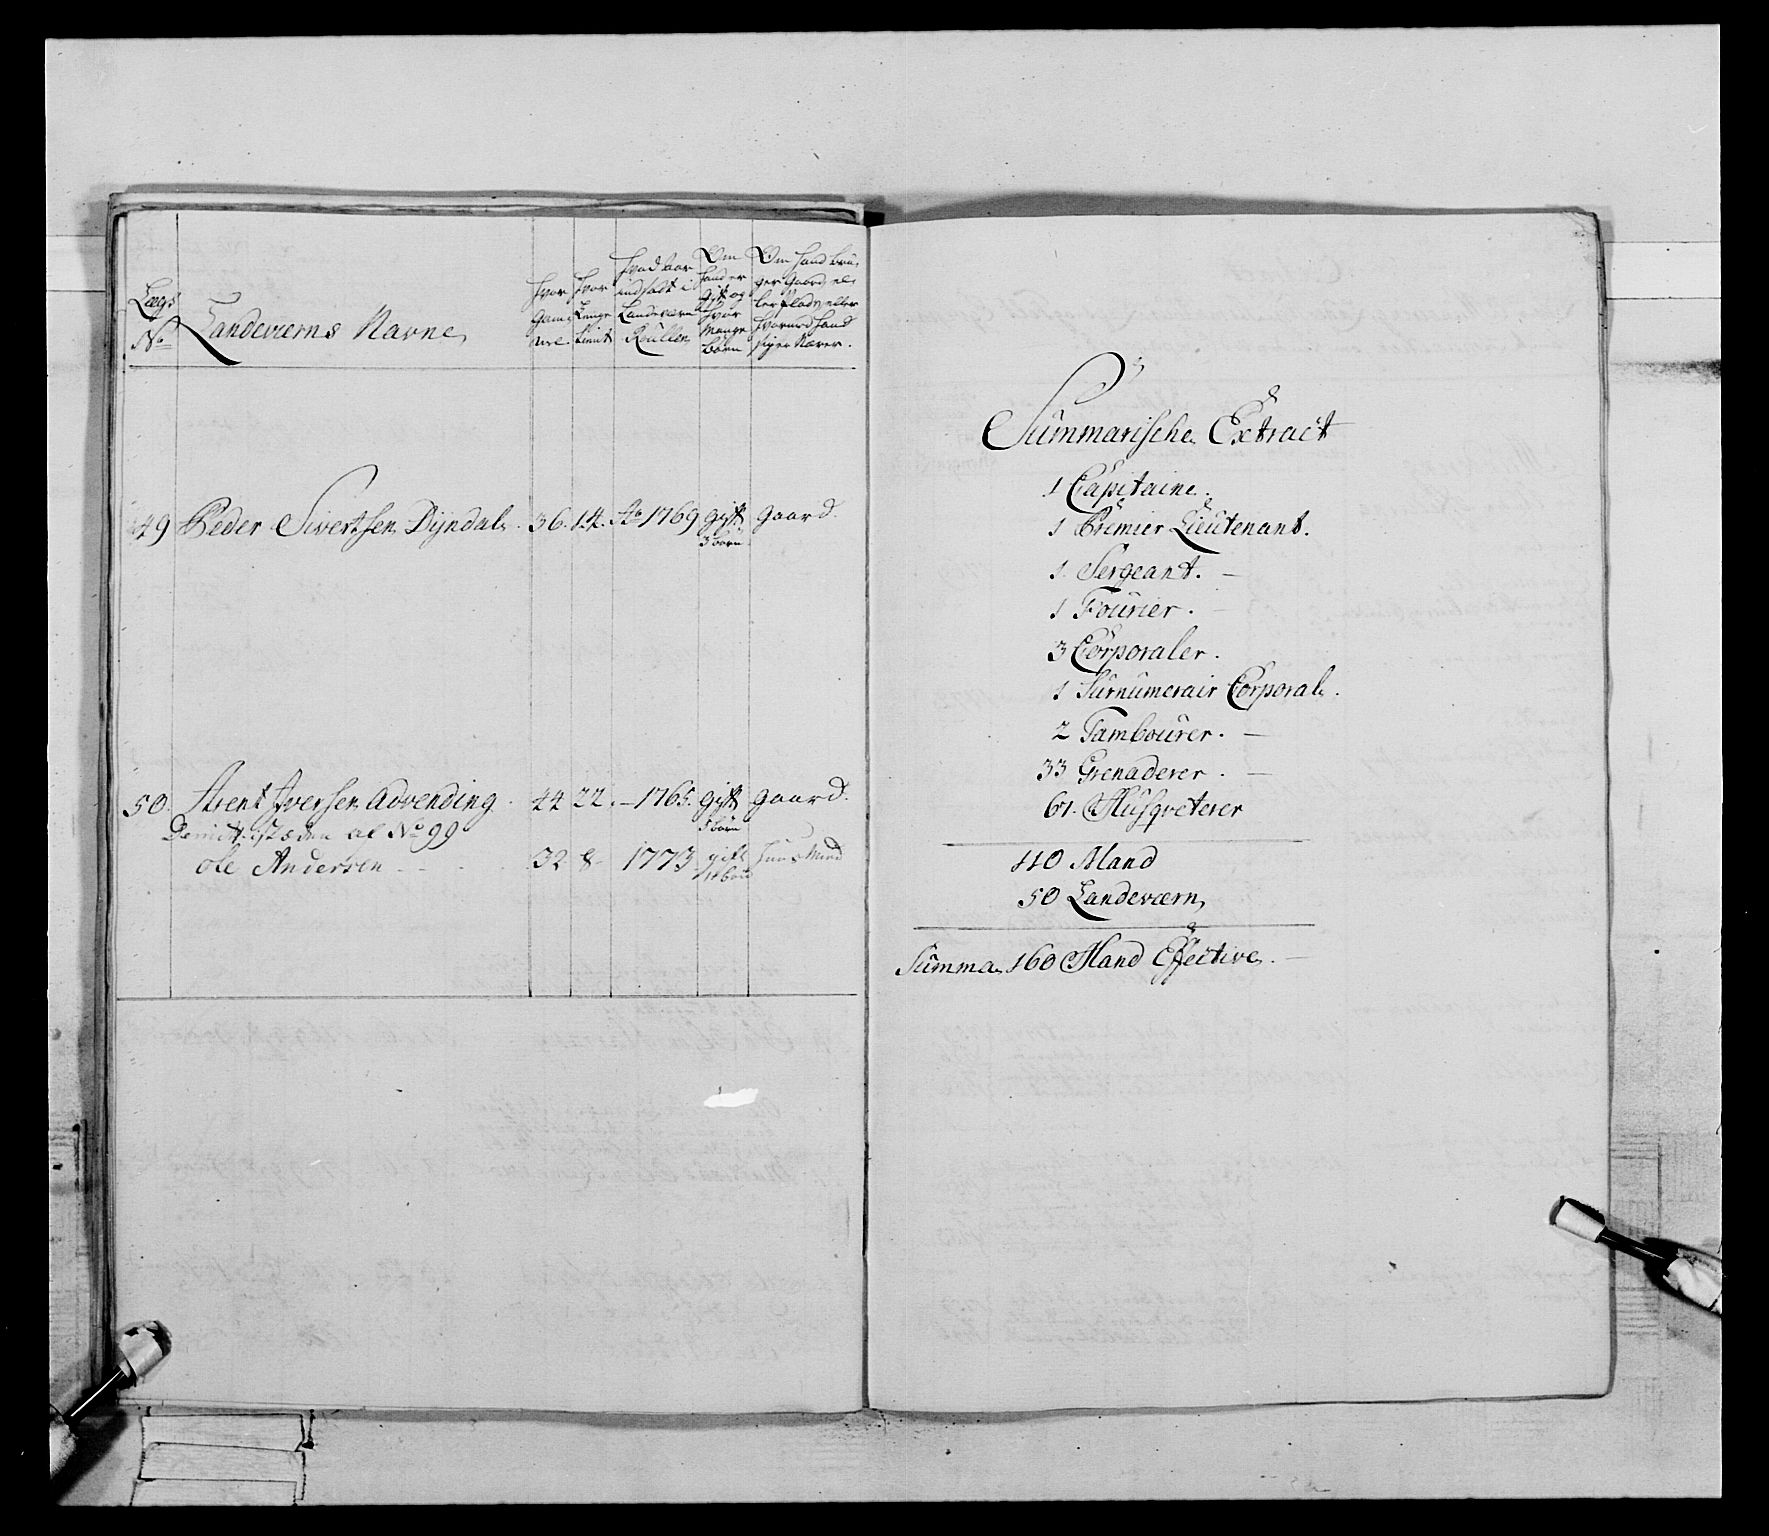 Lægs No
Landeværns Navne
Hvor Gammel
Hvor Lenge tient
Hvad Aar indsadt i Landeværn Roullen
Om hand er Gift og hvor Mange Børn
Om Hand bruger Gaard eller Plads eller hvormed Hand sig er Nærer.
49 Peder Sivertsen Dÿndal. 36. 14. Ao 1769 gift Gaard.
3 børn
50. Arent Iversen Advending. 44 22. – 1765. gift gaard.
5 børn
Demitt. istæden af No 99
Ole Andersen 32 8 1773 gift Huus Mand
Summarische Extract
1 Capitaine.
1 Premier Lieutenant.
1. Sergeant. –
1 Fourier. –
3 Corporaler.
1 Surnumerair Corporal.
2 Tambourer. –
33 Grenaderer. –
67. Musqveterer
110 Mand
50 Landeværn
Summa 160 Mand Effective. –